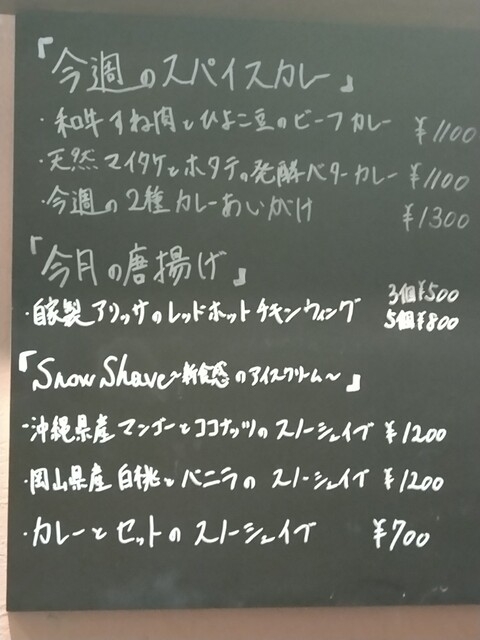 『今週のスパイスカレー』
・和牛すね肉とひよこ豆のビーフカレー ¥1100
・天然マイタケとホタテの発酵バターカレー ¥1100
・今週の2種カレーあいがけ ¥1300
『今月の唐揚げ』
3個¥500
・自家製アリッサのレッドホットチキンウィング 5個¥800
『Snow Shave〜新食感のアイスクリーム〜』
・沖縄県産マンゴーとココナッツのスノーシェイブ ¥1200
・岡山県産白桃とバニラのスノーシェイブ ¥1200
・カレーとセットのスノーシェイブ ¥700